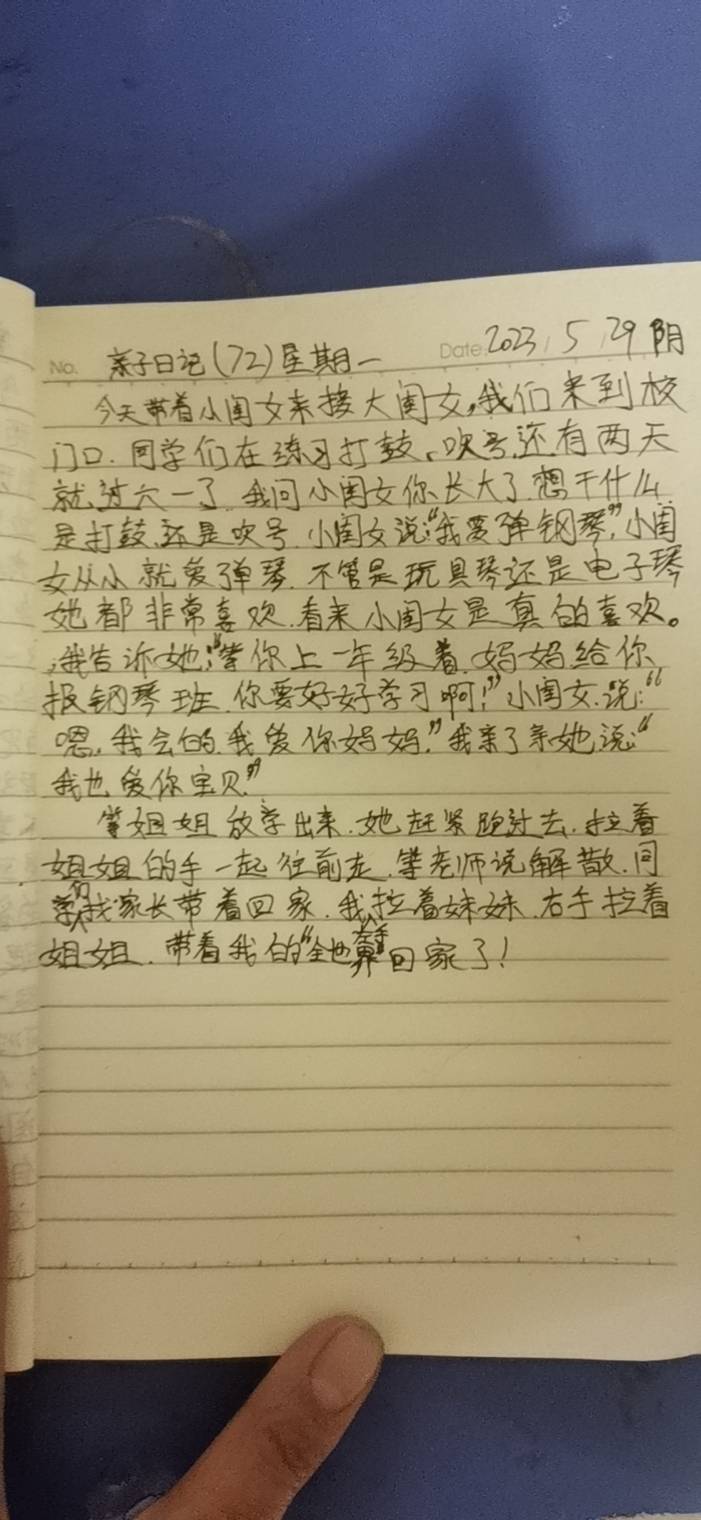 No. 亲子日记(72)星期一 Date. 2023/5/29 阴
今天带着小闺女来接大闺女,我们来到校
门口.同学们在练习打鼓、吹号.还有两天
就过六一了.我问小闺女你长大了.想干什么.
是打鼓.还是吹号.小闺女说:“我要弹钢琴”,小闺
女从小就爱弹琴.不管是玩具琴还是电子琴
她都非常喜欢.看来小闺女是真的喜欢。
我告诉她:“等你上一年级着.妈妈给你
报钢琴班.你要好好学习啊!”小闺女.说:“
嗯,我会的.我爱你妈妈.”我亲了亲她说:“
我也爱你宝贝”
等姐姐放学出来.她赶紧跑过去.拉着
姐姐的手一起往前走.等老师说解散.同
学们找家长带着回家.我拉着妹妹.右手拉着
姐姐.带着我的“全世界”回家了!